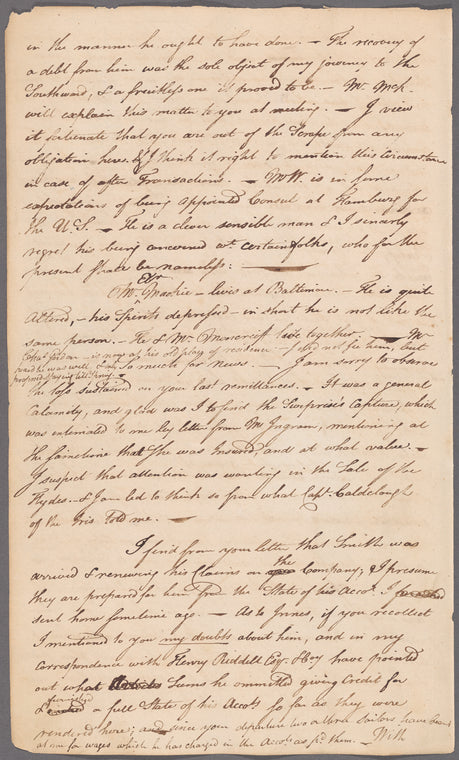 in the manner he ought to have done. – The recovery of
a debt from him was the sole object of my journey to the
Southward, & a fruitless one it proved to be. – Mr. McK.
will explain this matter to you at meeting. – I view
it fortunate that you are out of the Scrape from any
obligation here. & I think it right to mention this Circumstance
in case of after Transactions. – Mr W. is in some
expectations of being appointed Consul at Hamburg for
the U.S. – He is a clever sensible man & I sincerly
regret his being concerned wt. certain folks, who for the
present shall be nameless: –
Mr. Mackie – lives at Baltimore. – He is quite
Altered, – his Spirits depressed – in short he is not like the
same person. – He & Mr. Moncrieff live together. – Mr
is now of his old place of residence – I did not see him, but
found he was well &
So much for News. – I am sorry to observe
the loss sustained on your last remittances. – It was a general
Calamity, and glad was I to find the Surprise's Capture, which
was intimated to me by letter from Mr Ingram, mentioning at
the same time that She was Insured, and at what value. –
I suspect that attention was wanting in the Sale of the
Hydes. – & I am led to think so from what Capt. Caldclough
of the Iris told me. –
I find from your letter that Smith was
arrived & renewing his Claims on the Company, & I presume
they are prepared for him from the State of his Accot. I
sent home sometime ago. – As to Innes, if you recollect
I mentioned to you my doubts about him, and in my
correspondence with Henry Riddell Esqr. & Coy have pointed
out what Sums he ommitted giving Credit for
& furnished a full State of his Accots so far as they were
rendered here; and since your departure two a three Sailors have
at me for wages which he has charged in the Accots as pd. them. – With